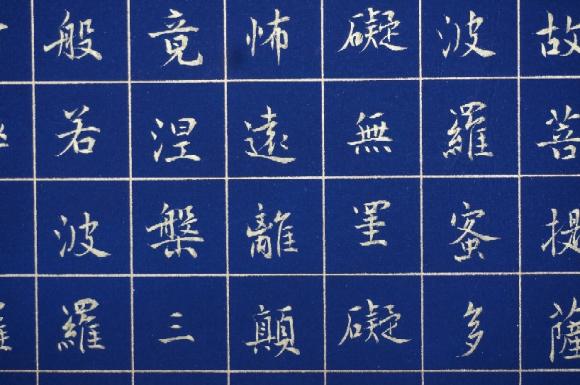 故菩提薩
波羅蜜多
礙無罣礙
怖遠離顛
竟涅槃三
般若波羅